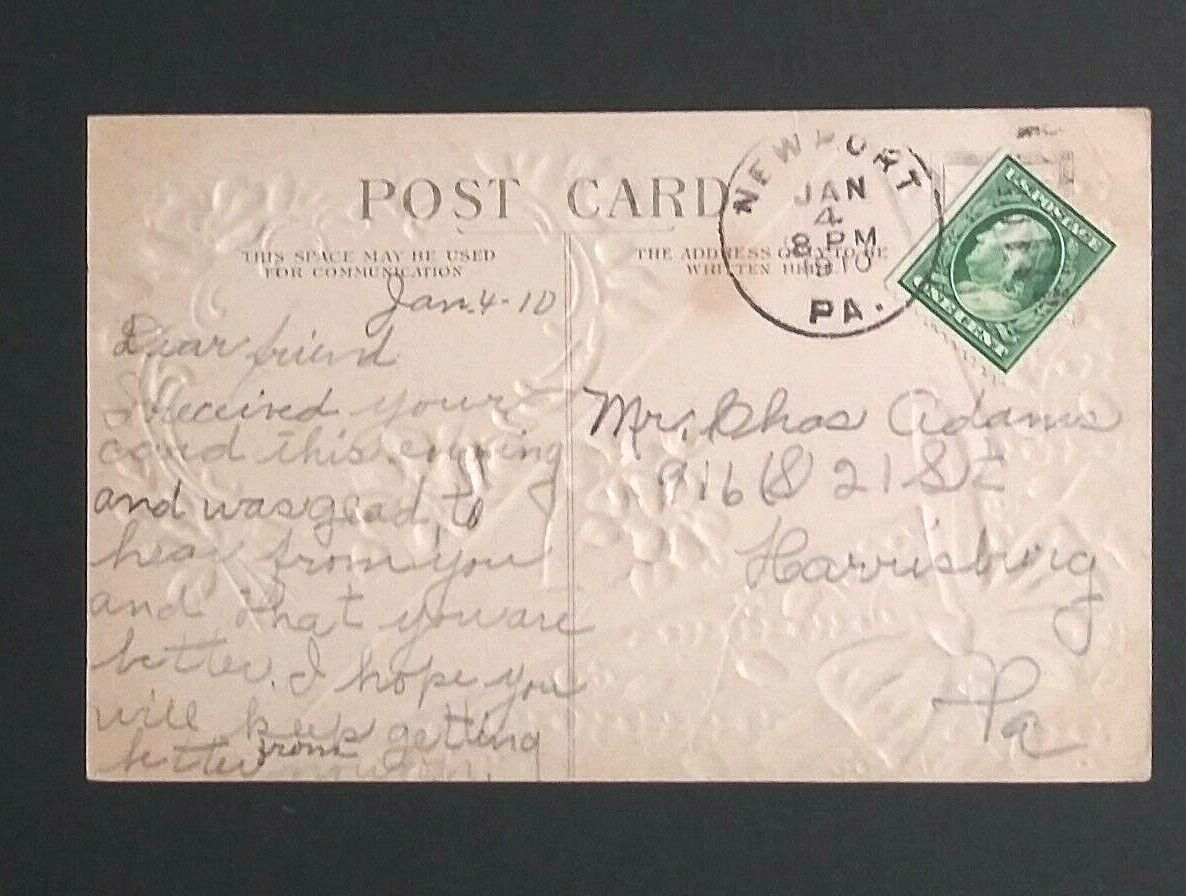 POST CARD
THIS SPACE MAY BE USED
FOR COMMUNICATION
THE ADDRESS ONLY TO BE
WRITTEN HERE
NEWPORT
JAN
4
8 PM
1910
PA.
U.S. POSTAGE
ONE CENT
Jan. 4-10
Dear friend
I received your
card this evening
and was glad to
hear from you
and that you are
better. I hope you
will keep getting
better from
Mr. Chas Adams
916 S 21 St
Harrisburg
Pa